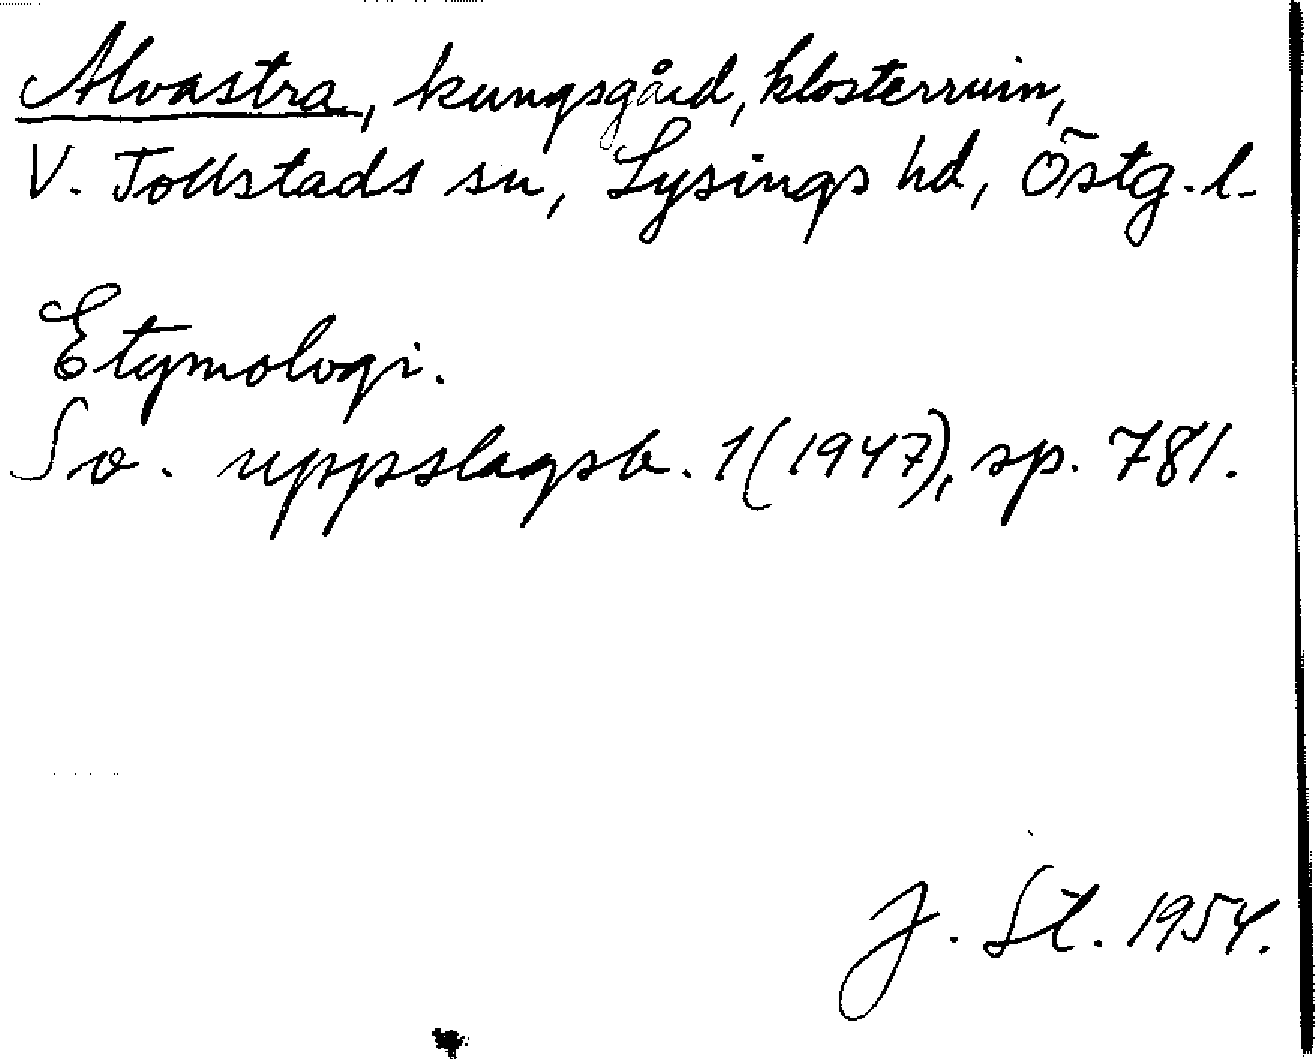 Alvastra, kungsgård, klosterruin,
V. Tollstads sn, Lysings hd, Östg. l.
Etymologi.
Sv. uppslagsb. 1 (1947), sp. 781.
J. St. 1954.